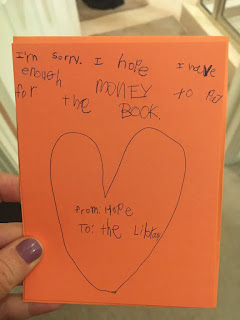 I'm sorry. I hope I have
enough MONEY to
for the BOOK.
From: Hope
To: the